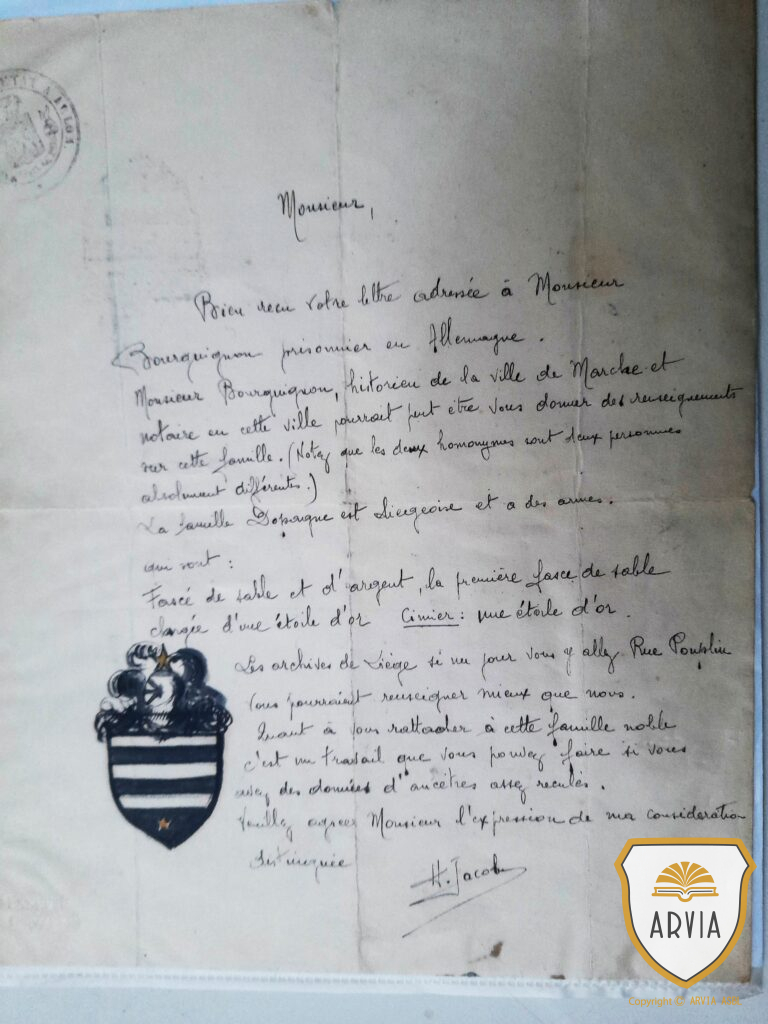 Monsieur,
Bien reçu votre lettre adressée à Monsieur
Bourguignon prisonnier en Allemagne.
Monsieur Bourguignon, historien de la ville de Marche et
notaire en cette ville pourrait peut être vous donner des renseignements
sur cette famille. (Notez que les deux homonymes sont deux personnes
absolument différentes.)
La famille Dopagne est Liégeoise et a des armes.
qui sont :
Fascé de sable et d'argent, la première fasce de sable
chargée d'une étoile d'or Cimier : une étoile d'or.
Les archives de Liège si un jour vous y allez Rue Pouplin
vous pourraient renseigner mieux que nous.
Quant à vous rattacher à cette famille noble
c'est un travail que vous pouvez faire si vous
avez des données d'ancêtres assez reculés.
Veuillez agréer Monsieur l'expression de ma consideration
distinguée
H. Jacob
ARVIA
Copyright © ARVIA